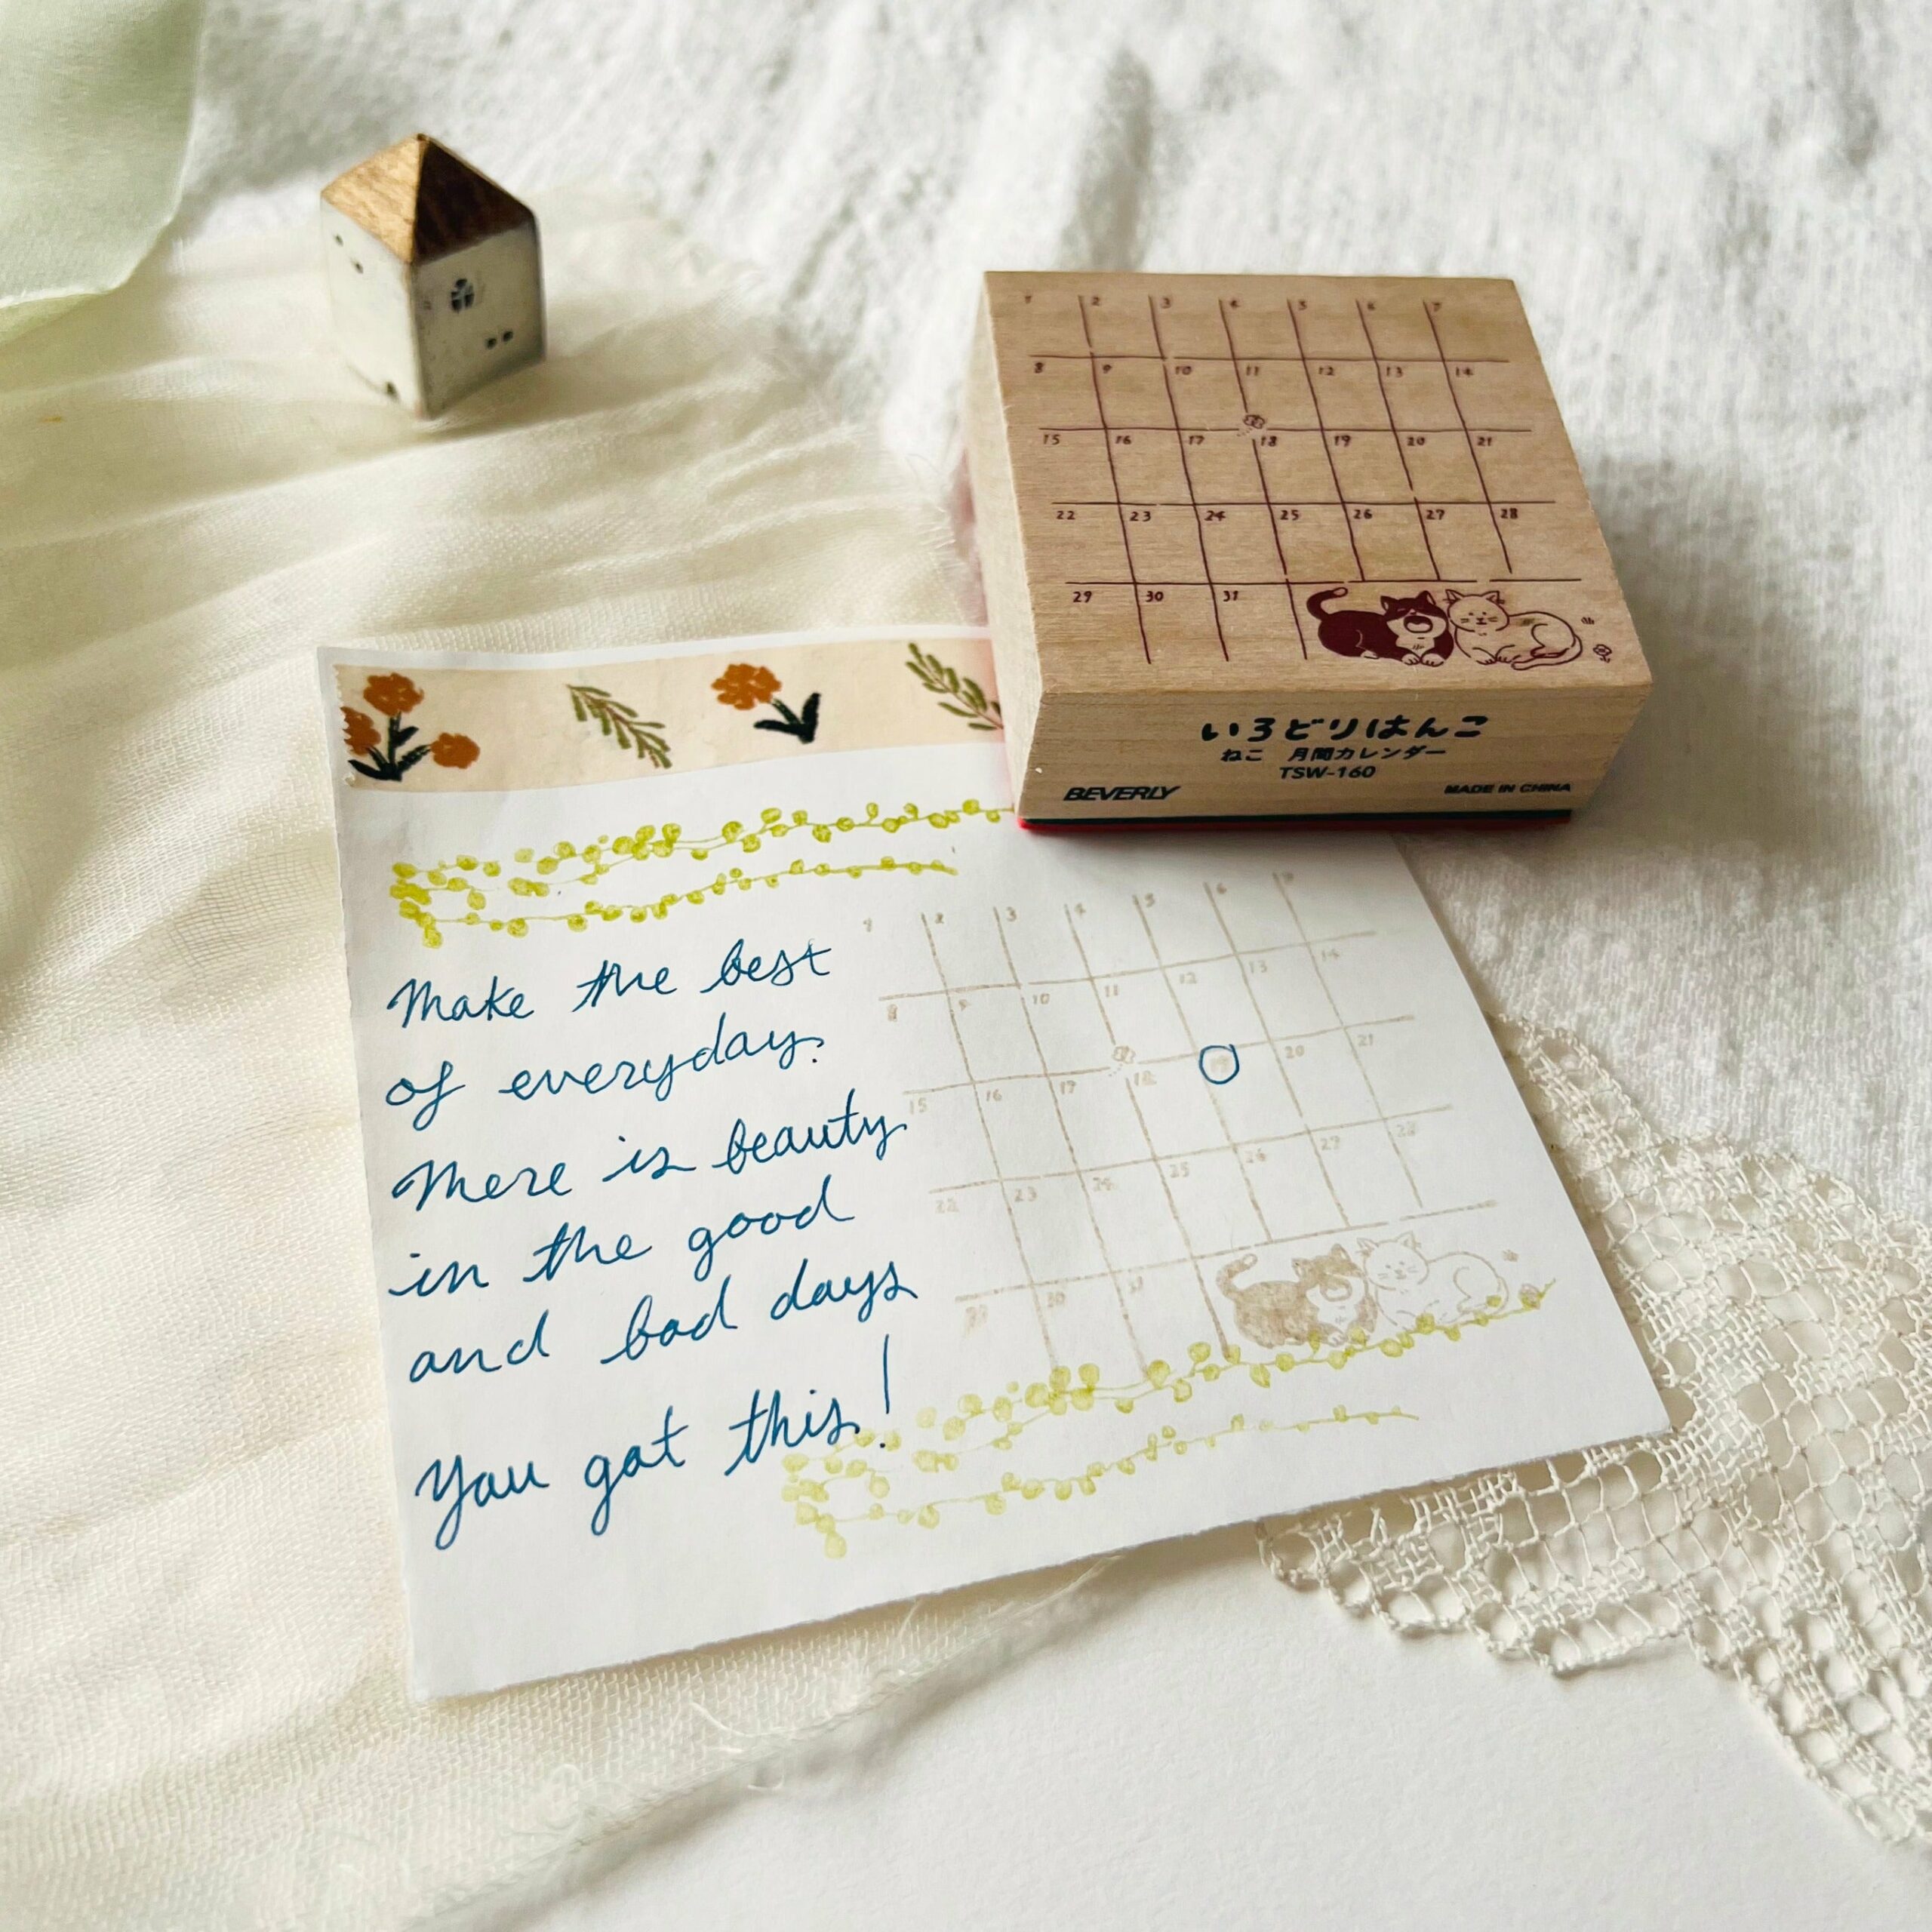 1 2 3 4 5 6 7
8 9 10 11 12 13 14
15 16 17 18 19 20 21
22 23 24 25 26 27 28
29 30 31
いろどりはんこ
ねこ 月間カレンダー
TSW-160
BEVERLY MADE IN CHINA
Make the best
of everyday.
There is beauty
in the good
and bad days
You got this!
1 2 3 4 5 6 7
8 9 10 11 12 13 14
15 16 17 18 19 20 21
22 23 24 25 26 27 28
29 30 31